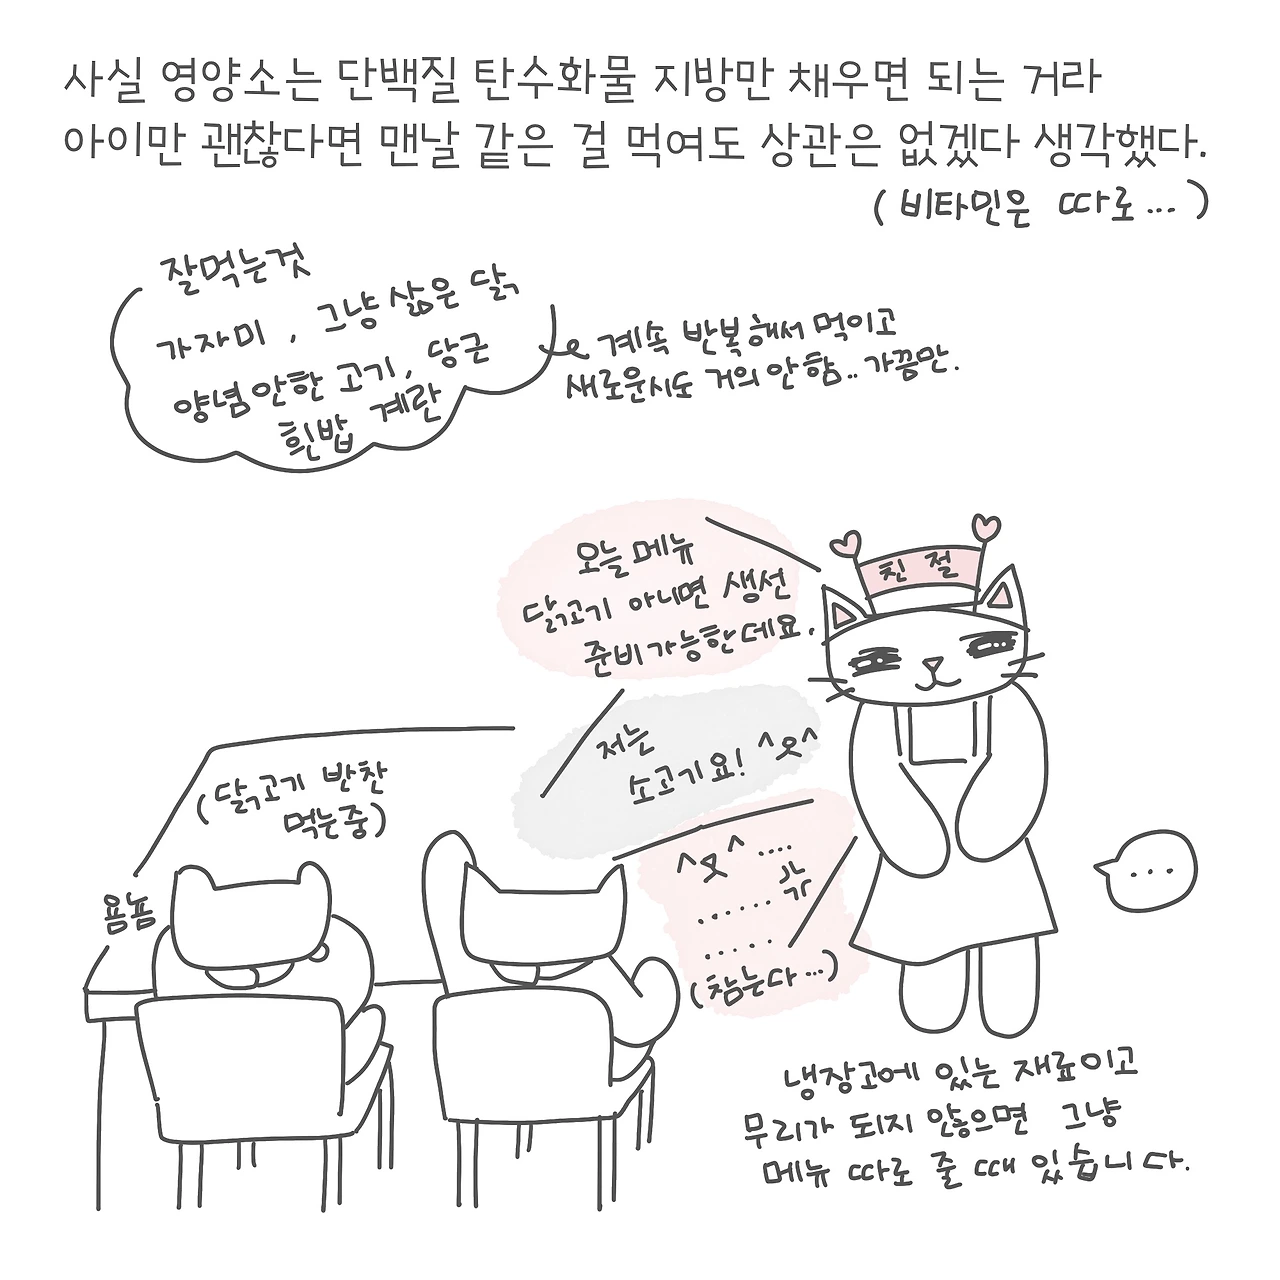 사실 영양소는 단백질 탄수화물 지방만 채우면 되는 거라
아이만 괜찮다면 맨날 같은 걸 먹여도 상관은 없겠다 생각했다.
(비타민은 따로...)
잘먹는것
가자미, 그냥 삶은 닭
양념안한 고기, 당근
흰밥 계란
계속 반복해서 먹이고
새로운시도 거의 안함.. 가끔만.
친절
오늘 메뉴
닭고기 아니면 생선
준비가능한데요.
저는
소고기요! ^오^
(닭고기 반찬
먹는중)
욤뇸
^ㅈ^ ....
......
.....
(참는다...)
...
냉장고에 있는 재료이고
무리가 되지 않으면 그냥
메뉴 따로 줄 때 있습니다.